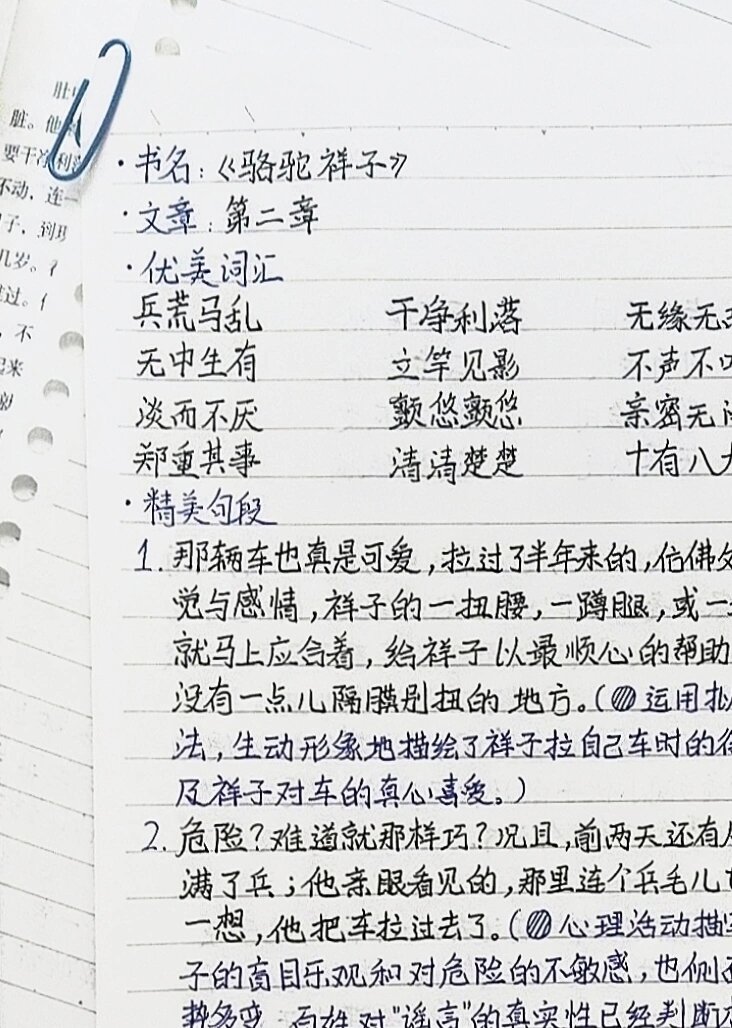 肚
脏。他
要干净利
不动，连一
子，到
几岁。
过。
，不
起来
·书名：《骆驼祥子》
·文章：第二章
·优美词汇
兵荒马乱 干净利落 无缘无
无中生有 立竿见影 不声不
淡而不厌 颤悠颤悠 亲密无
郑重其事 清清楚楚 十有八
·精美句段
1. 那辆车也真是可爱，拉过了半年来的，仿佛
觉与感情，祥子的一扭腰，一蹲腿，或一
就马上应合着，给祥子以最顺心的帮助
没有一点儿隔膜别扭的地方。（运用拟
法，生动形象地描绘了祥子拉自己车时的
及祥子对车的真心喜爱。）
2. 危险？难道就那样巧？况且，前两天还有
满了兵；他亲眼看见的，那里连个兵毛儿
一想，他把车拉过去了。（心理活动描
子的盲目乐观和对危险的不敏感，也侧
势多变，百姓对"谣言"的真实性已经判断